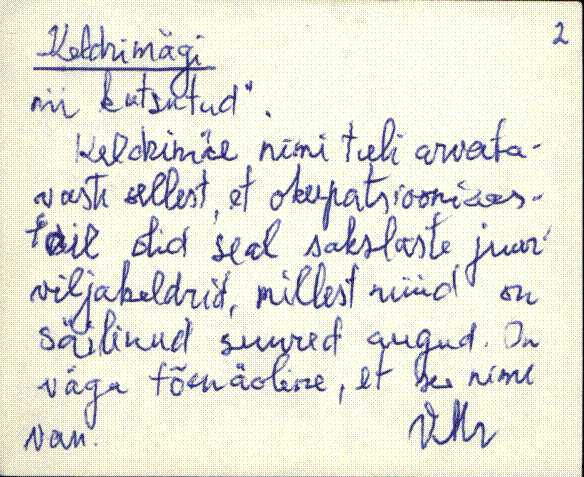 2
Keldrimägi
nii kutsutud".
Keldrimäe nimi tuli arvata-
vasti sellest, et okupatsiooniaas-
tail olid seal sakslaste juur
viljakeldrid, millest nüüd on
säilinud suured augud. On
väga tõenäoline, et see nimi
van.